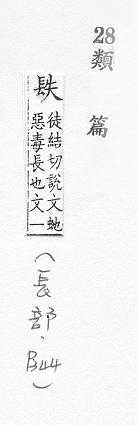 28
類篇
镻
徒結切說文虵
惡毒長也文一
(長部、B44)